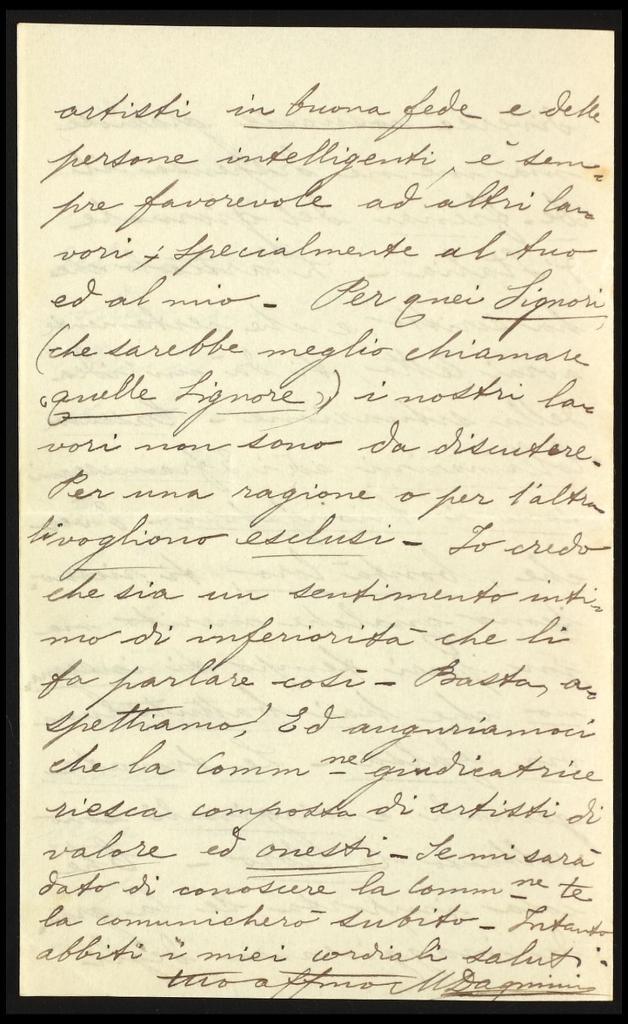 artisti in buona fede e delle
persone intelligenti, è sem=
pre favorevole ad altri la=
vori, specialmente al tuo
ed al mio - Per quei Signori,
(che sarebbe meglio chiamare
"quelle Signore") i nostri la=
vori non sono da discutere -
Per una ragione o per l'altra
li vogliono esclusi - Io credo
che sia un sentimento inti=
mo di inferiorità che li
fa parlare così - Basta, a=
spettiamo! Ed auguriamoci
che la Comm.ne giudicatrice
riesca composta di artisti di
valore ed onesti - Se mi sarà
dato di conoscere la Comm.ne te
la comunicherò subito - Intanto
abbiti i miei cordiali saluti.
tuo affmo M Dagnini